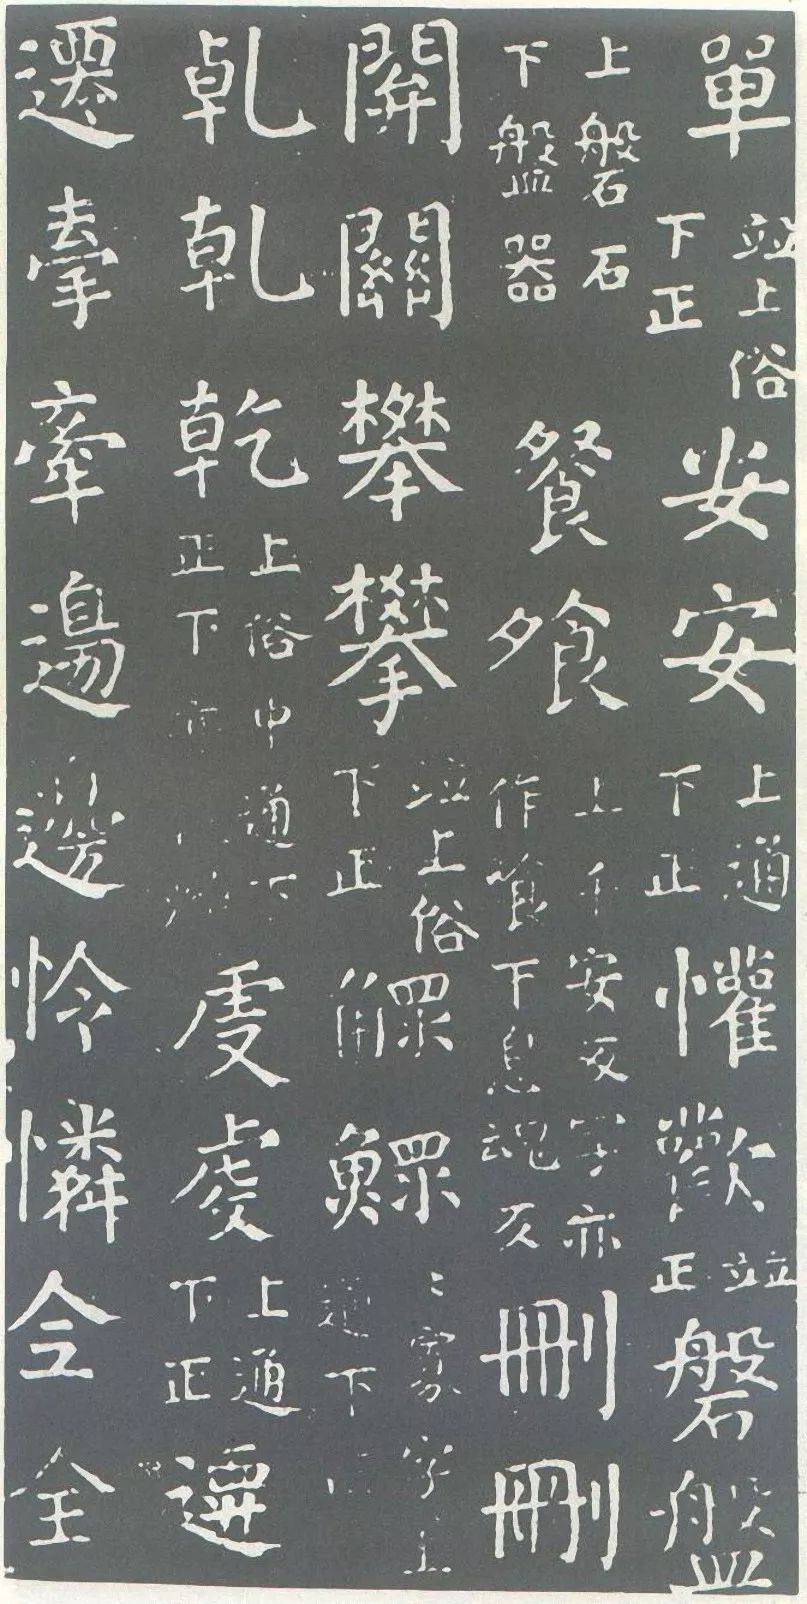 單竝上俗下正安安上通下正懽歡竝正磐盤
上磐石下盤器餐飱上千安反字亦作飡下息魂反刪刪
関關攀攀竝上俗下正鰥鰥寡字上通下
乹乹乾上俗中通下正下亦虔虔上通下正遷
遷牽牽邊邊怜憐仝全